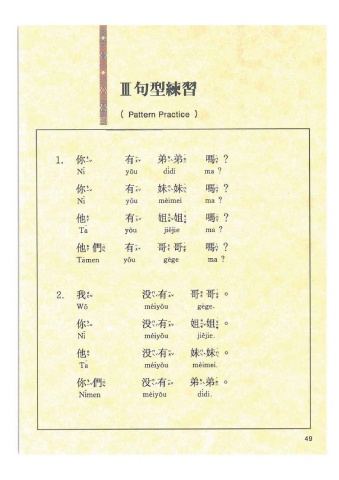 III 句型練習
( Pattern Practice )
1. 你 有 弟弟 嗎 ?
Nǐ yǒu dìdi ma ?
你 有 妹妹 嗎 ?
Nǐ yǒu mèimei ma ?
他 有 姐姐 嗎 ?
Ta yǒu jiějie ma ?
他們 有 哥哥 嗎 ?
Tamen yǒu gēge ma ?
2. 我 没有 哥哥。
Wǒ méiyǒu gēge.
你 没有 姐姐。
Nǐ méiyǒu jiějie.
他 没有 妹妹。
Ta méiyǒu mèimei.
你們 没有 弟弟。
Nǐmen méiyǒu dìdi.
49